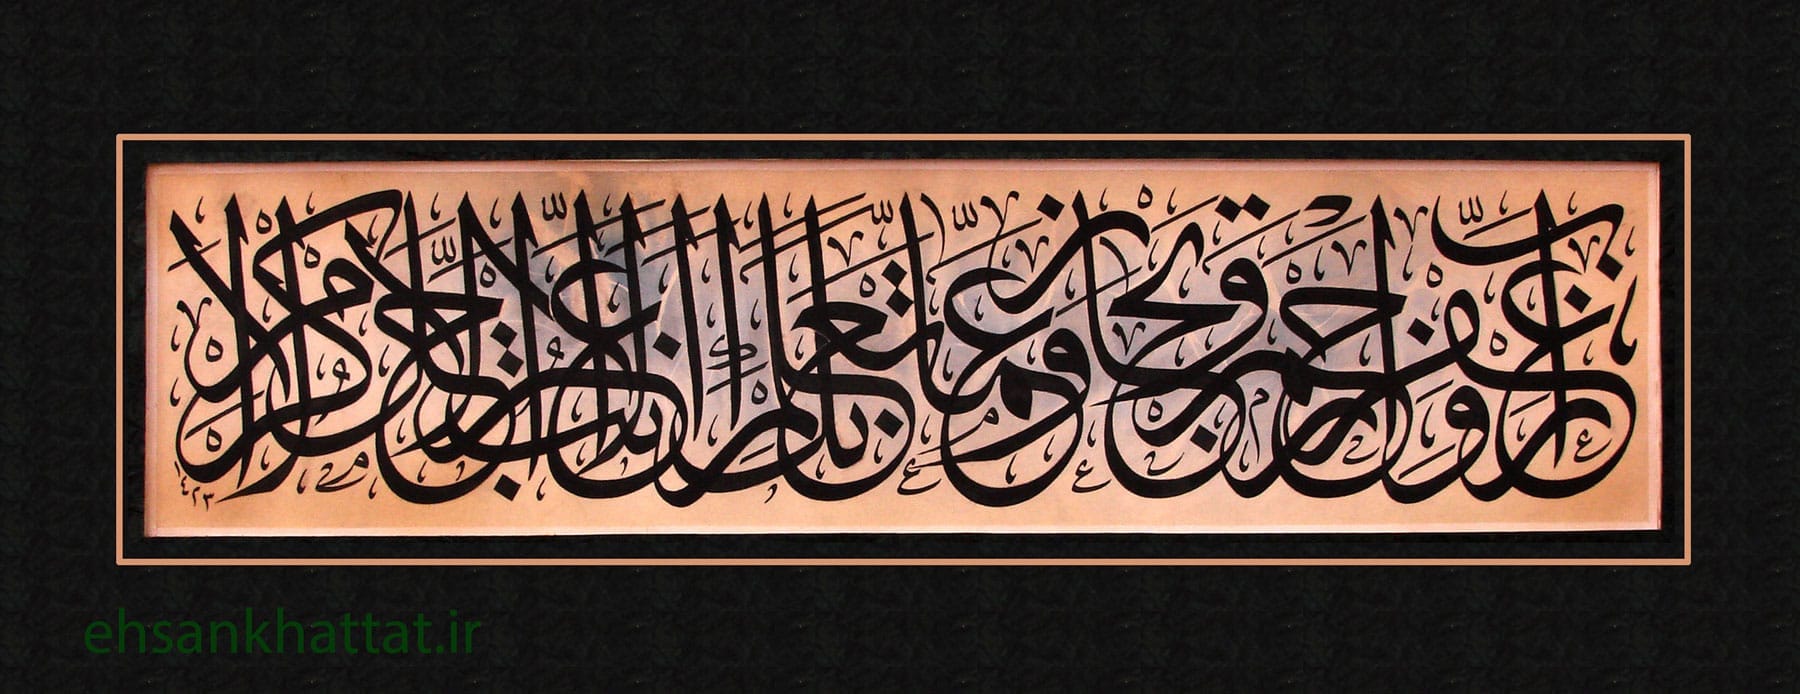 رب اغفر وارحم وتجاوز عما تعلم انك انت الاعز الاجل الاكرم
١٤٢٣
ehsankhattat.ir